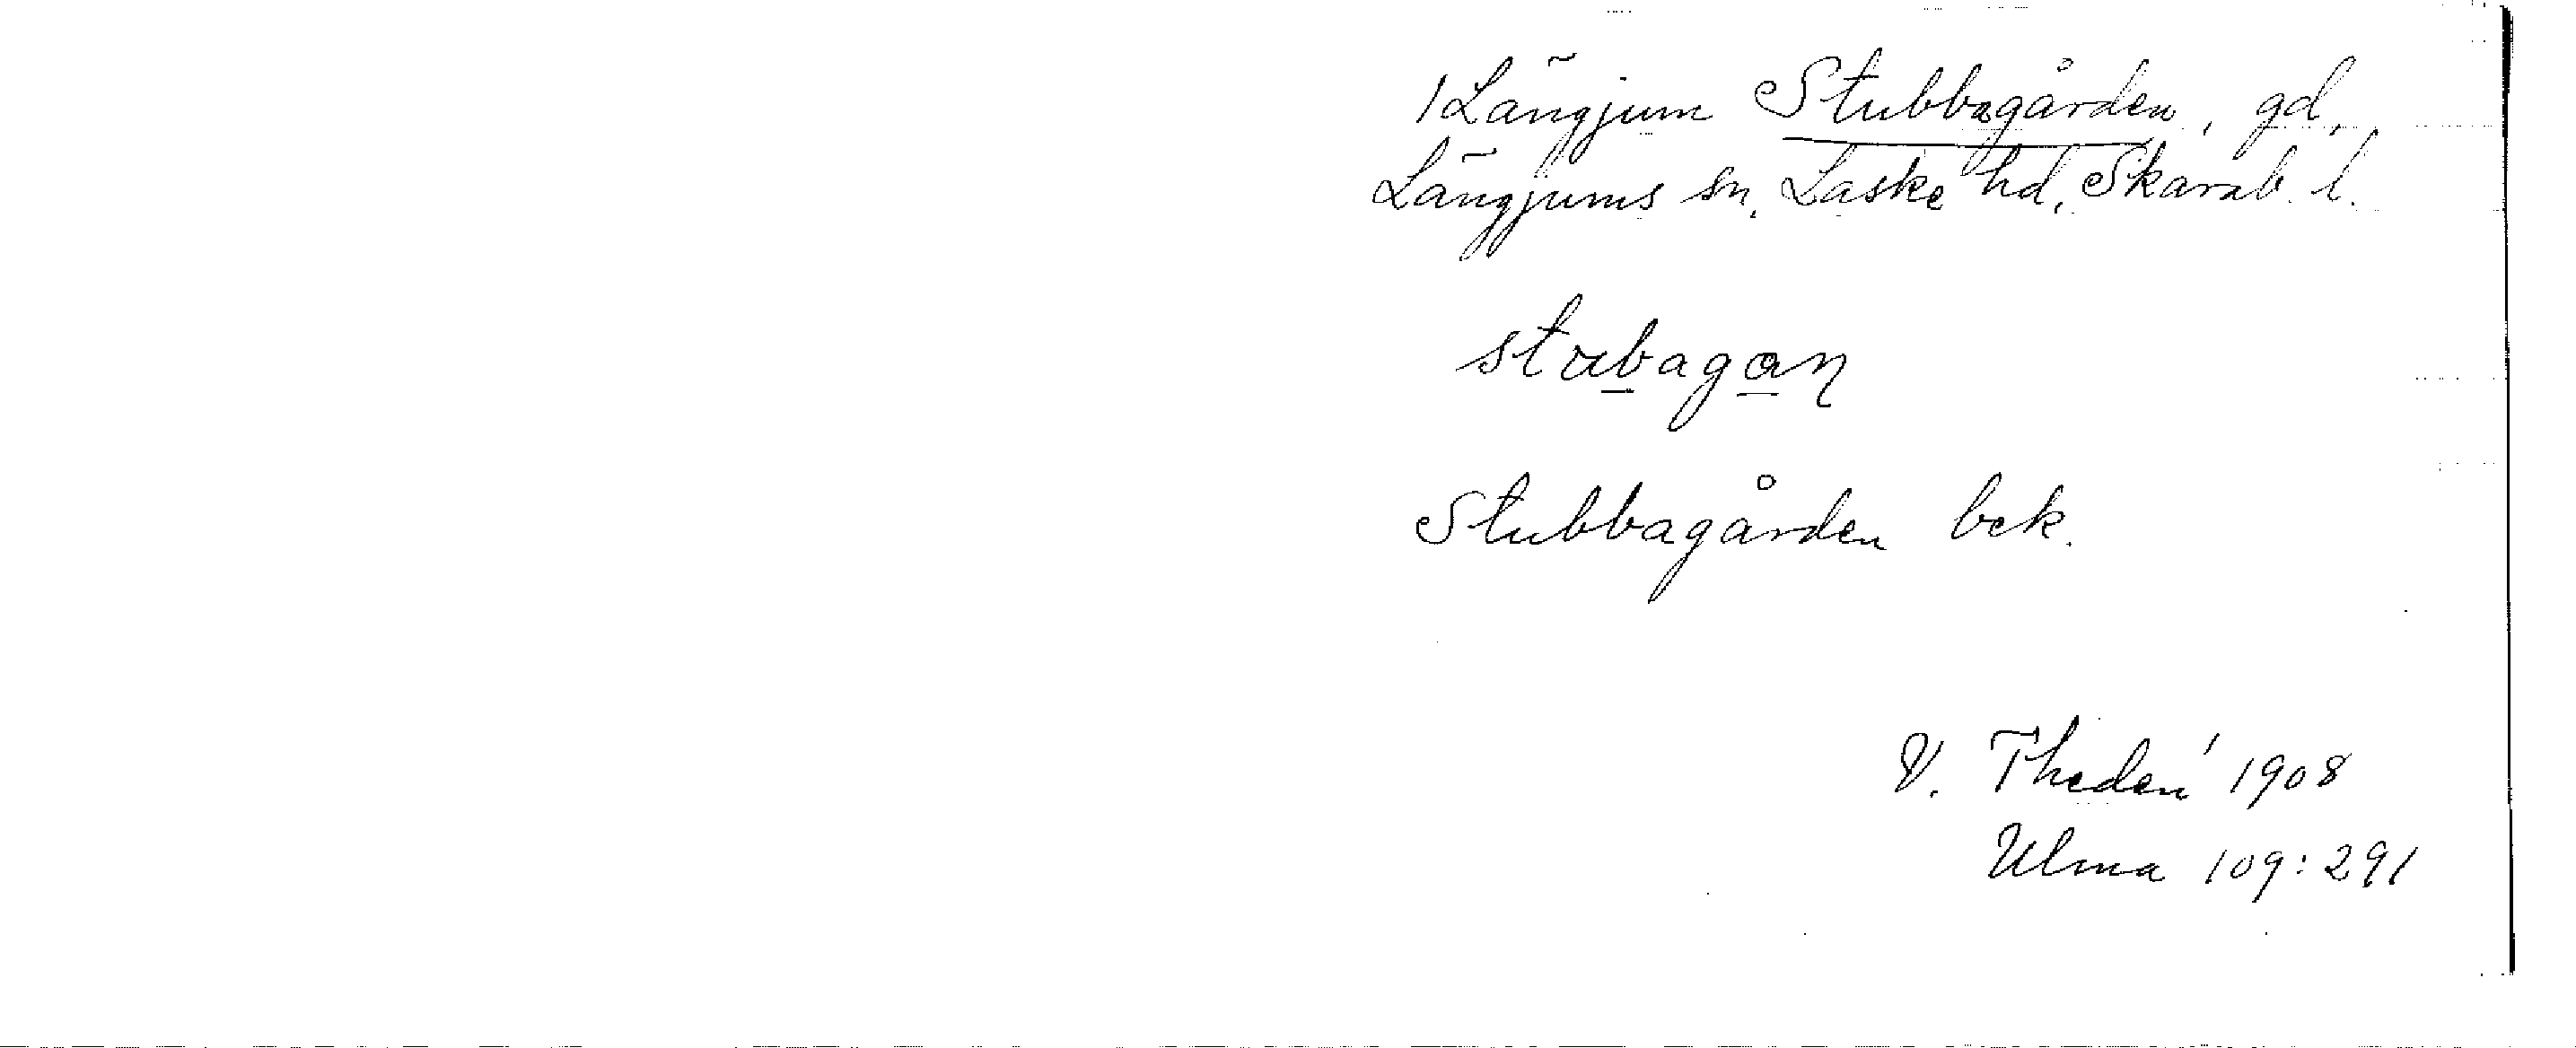 1 Längjum Stubbagården, gd,
Längjums sn, Laske hd, Skarab. l.
stubagan
Stubbagården bek.
V. Thedén 1908
Ulma 109:291